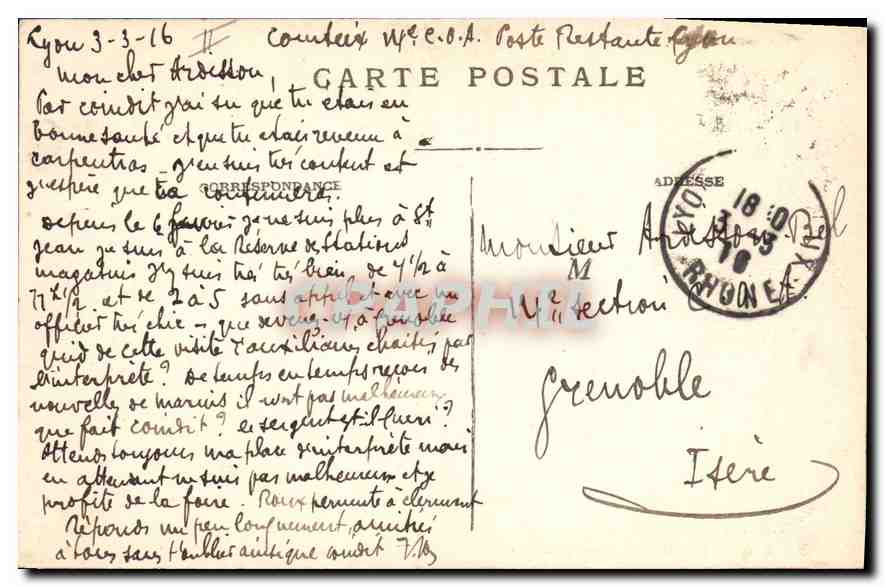 Lyon 3-3-16 Comteix 14e C.O.A. Poste Restante Lyon
mon cher Ardisson,
CARTE POSTALE
Par coindit j'ai su que tu etais en
bonne santé et que tu etais revenu à
carpentras j'en suis très content et
j'espère que ta continueras.
CORRESPONDANCE
ADRESSE
depuis le 6 je ne suis plus à St
jean je suis à la Réserve de Stations
magasins j'y suis très très bien de 7 1/2 à
11h 1/2 et de 2 à 5 sans appel et avec un
officier très chic - que devenez vs à Grenoble
quid de cette visite d'auxiliaires
d'interprète? de temps en temps reçois des
nouvelles de il n'est pas malheureux
que fait coindit? le sergent est il Guéri?
Attends toujours ma place d'interprète mais
en attendant ne suis pas malheureux et je
profite de la foire. Roux permute à clermont
Réponds un peu longuement, amitiés
à tous sans t'oublier ainsi que coindit
Monsieur Ardisson
M
14e section C.O.A.
Grenoble
Isère
LYON
18 0
3 -3
16
RHONE
CPAPHIL